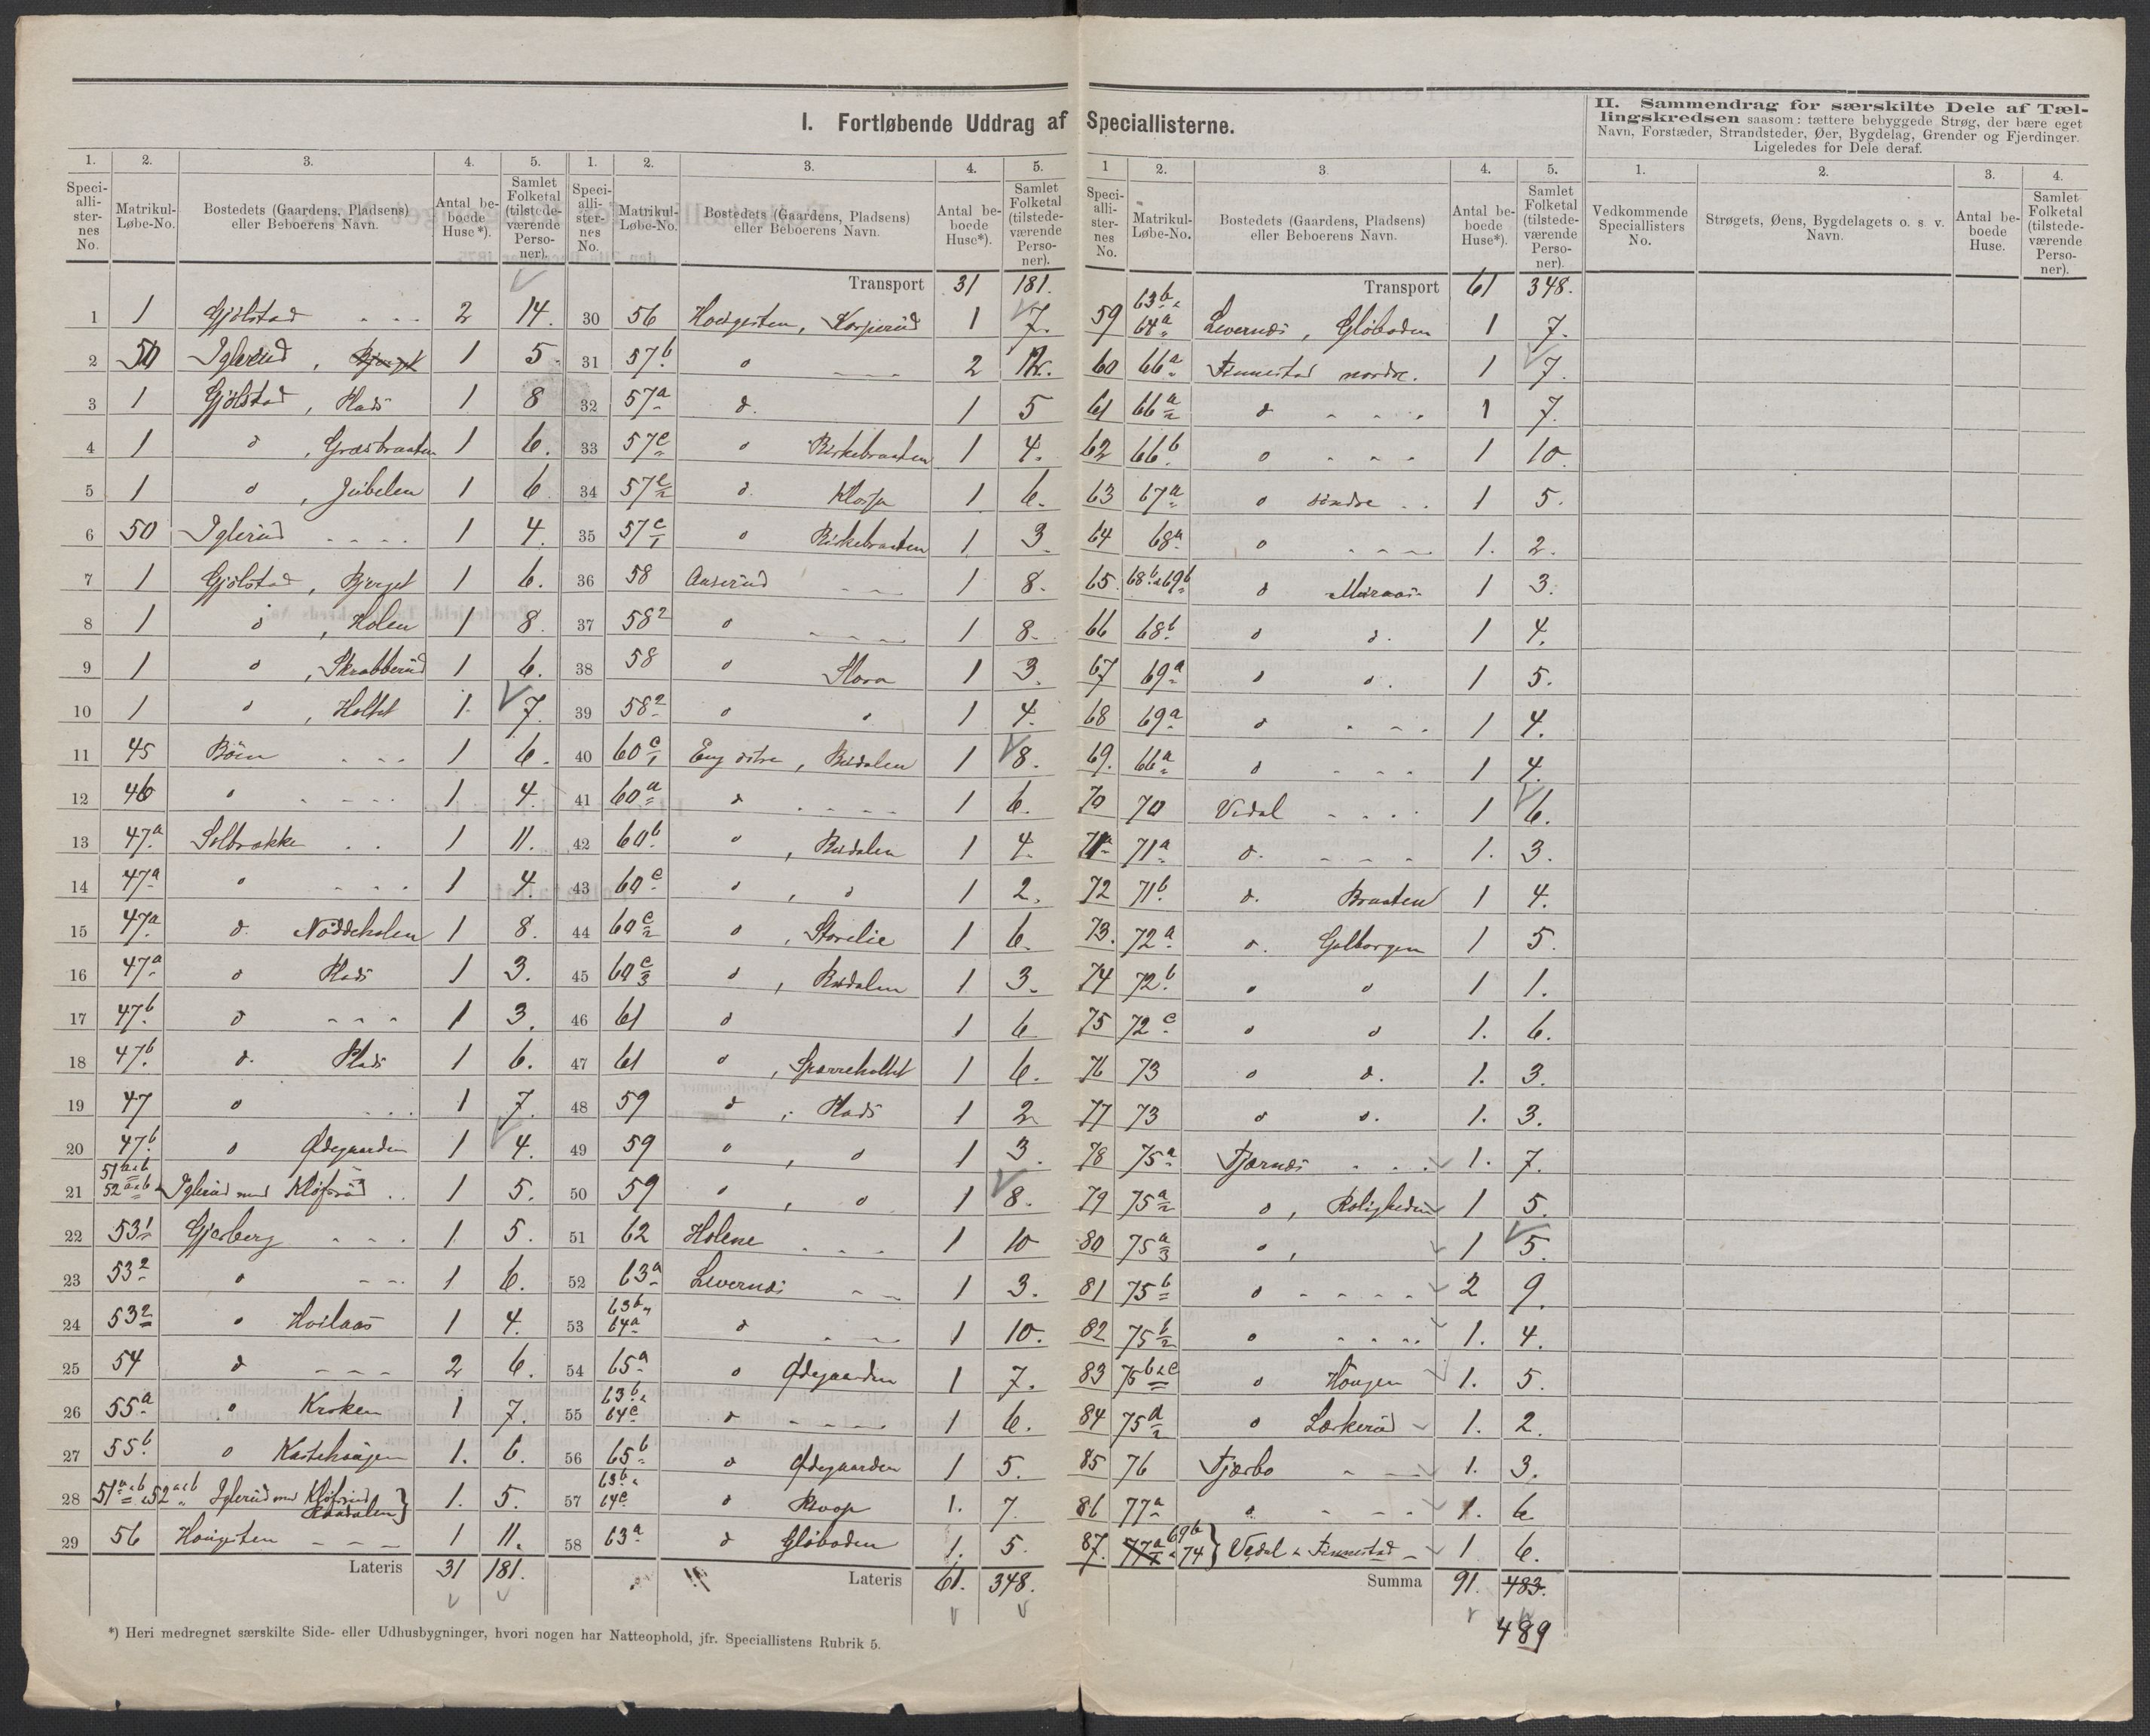 I. Fortløbende Uddrag af Speciallisterne.
II. Sammendrag for særskilte Dele af Tællingskredsen saasom: tættere bebyggede Strøg, der bære eget
Navn, Forstæder, Strandsteder, Øer, Bygdelag, Grender og Fjerdinger.
Ligeledes for Dele deraf.
1. 2. 3. 4. 5.
Speciallisternes No. Matrikul-Løbe-No. Bostedets (Gaardens, Pladsens) eller Beboerens Navn. Antal beboede Huse*). Samlet Folketal (tilstedeværende Personer).
1 1 Gjølstad 2 14.
2 50 Iglerud, 1 5.
3 1 Gjølstad, Plads 1 8
4 1 d, Græsbraaten 1 6.
5 1 d, Jubelen 1 6
6 50 Iglerud 1 4.
7 1 Gjølstad, Bjerget 1 6.
8 1 d, Holen 1 8.
9 1 d, Skrabberud 1 6.
10 1 d, Holtet 1. 7.
11 45 Böen 1 6.
12 46 d 1 4.
13 47a Solbrække 1 11.
14 47a d 1 4.
15 47a d. Nøddeholen 1 8.
16 47a d Plads 1 3.
17 47b. d 1 3.
18 47b. d. Plads 1 6.
19 47 d 1 7.
20 47b. d Ødegaarden 1 4.
21 51a&b 52a&b Iglerud med Kløfsrud 1 5.
22 53 1 Gjerberg 1 5.
23 53 2 d 1 6.
24 53 2 d Hvilaas 1 4.
25 54 d 2 6.
26 55a d Kroken 1 7.
27 55b d Kastehaugen 1. 6.
28 51a&b & 52a&b Iglerud med Kløfsrud Raadalen} 1. 5.
29 56 Haugsten 1 11.
Lateris 31 181.
1. 2. 3. 4. 5.
Speciallisternes No. Matrikul-Løbe-No. Bostedets (Gaardens, Pladsens) eller Beboerens Navn. Antal beboede Huse*). Samlet Folketal (tilstedeværende Personer).
Transport 31 181.
30 56 Haugsten, Korperud 1 7.
31 57b d 2 12.
32 57a d. 1 5
33 57c d Birkebraaten 1 4.
34 57c/2 d. Klossa 1 6.
35 57c/1 d Birkebraaten 1 3.
36 58 Aaserud 1 8.
37 58 2 d 1 8.
38 58 d Flora 1 3.
39 58 2 d d 1 4.
40 60c/1 Eng østre, Budalen 1 8.
41 60a d 1 6.
42 60b d, Budalen 1 4.
43 60c d, d 1 2.
44 60c/2 d, Storelie 1 6.
45 60c/3 d, Budalen 1 3.
46 61 d 1 6
47 61 d, Sparreholtet 1 6.
48 59 d, Plads 1 2
49 59 d, d 1 3.
50 59 d, d 1 8.
51 62 Holene 1 10
52 63a Levernæs 1 3.
53 63b, 64a d 1 10.
54 65a d Ødegaarden 1 7.
55 63b & 64c d 1 6.
56 65b d Ødegaarden 1 5.
57 63b & 64c d 1. 7.
58 63a d Gløboden 1. 5.
Lateris 61. 348.
1 2. 3. 4. 5.
Speciallisternes No. Matrikul-Løbe-No. Bostedets (Gaardens, Pladsens) eller Beboerens Navn. Antal beboede Huse*). Samlet Folketal (tilstedeværende Personer).
Transport 61 348.
59 63b & 64a Levernæs, Gløboden 1 7.
60 66a Finnestad nordre. 1 7.
61 66a/2 d 1 7.
62 66b d 1 10.
63 67a d søndre 1 5.
64 68a d 1. 2.
65. 68b & 69b d Muraas 1 3.
66 68b d d. 1 4.
67 69a d d. 1 5.
68 69a d 1 4.
69. 66a d 1 4.
70 70 Vedal 1 6.
71 71a d. 1. 3.
72 71b. d. Braaten 1 4.
73. 72a d. Galborgen 1 5.
74 72b d d 1 1.
75 72c d d 1. 6.
76 73 d d. 1. 3.
77 73 d d. 1. 3.
78 75a Tjærnæs 1. 7.
79 75a/2 d, Roligheden 1 5.
80 75a/3 d, 1 5.
81 75b d 2 9.
82 75b/2 d 1. 4.
83 75b&c d Haugen 1. 5.
84 75d/2 d Lækerud 1. 2.
85 76 Tjærbo 1. 3.
86 77a d 1. 6
87. 77a/1 & 69b 74} Vedal & Finnestad 1 6.
Summa 91. 483.
489
1. 2. 3. 4.
Vedkommende Speciallisters No. Strøgets, Øens, Bygdelagets o. s. v. Navn. Antal beboede Huse. Samlet Folketal (tilstedeværende Personer).
*) Heri medregnet særskilte Side- eller Udhusbygninger, hvori nogen har Natteophold, jfr. Speciallistens Rubrik 5.